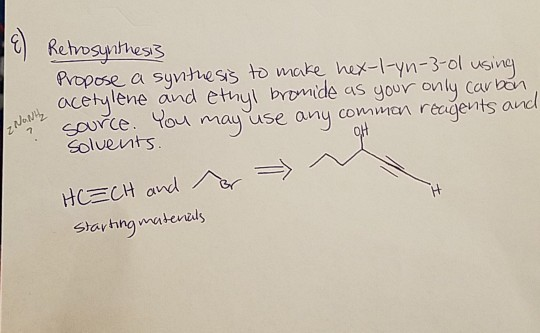 ε) Retrosynthesis
Propose a synthesis to make hex-1-yn-3-ol using
acetylene and ethyl bromide as your only carbon
2 NaNH2
?
source. You may use any common reagents and
solvents.
OH
HC≡CH and Br ⇒
H
starting materials